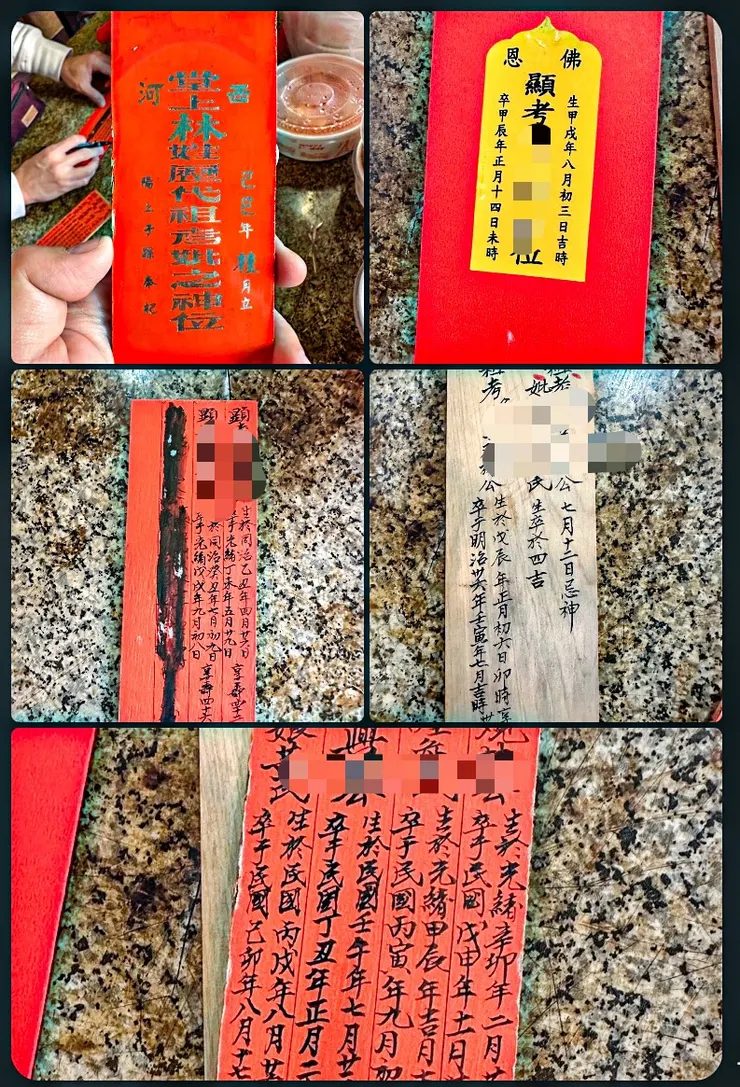 西河
堂上林姓歷代祖考妣之神位
年桂月立
陽上子孫奉祀
佛恩
顯考
位
生甲戌年八月初三日吉時
卒甲辰年正月十四日未時
顯
生於同治乙丑年四月廿六日
卒于光緒丁未年五月廿九日
享壽四十三
顯
於同治癸丑年七月初九日
卒于光緒戊戌年九月初八日
享壽四十六
公
七月十二日忌神
妣
氏
生卒於四吉
祖考
公
生於戊辰年正月初六日卯時
卒于明治廿六年壬寅年七月吉時
公
生於光緒辛卯年二月廿
卒于民國戊申年十一月
氏
生於光緒甲辰年吉月
卒于民國丙寅年九月初
興
公
生於民國壬午年七月廿
卒于民國丁丑年正月二
娘
氏
生於民國丙戌年八月廿
卒于民國己卯年八月十七